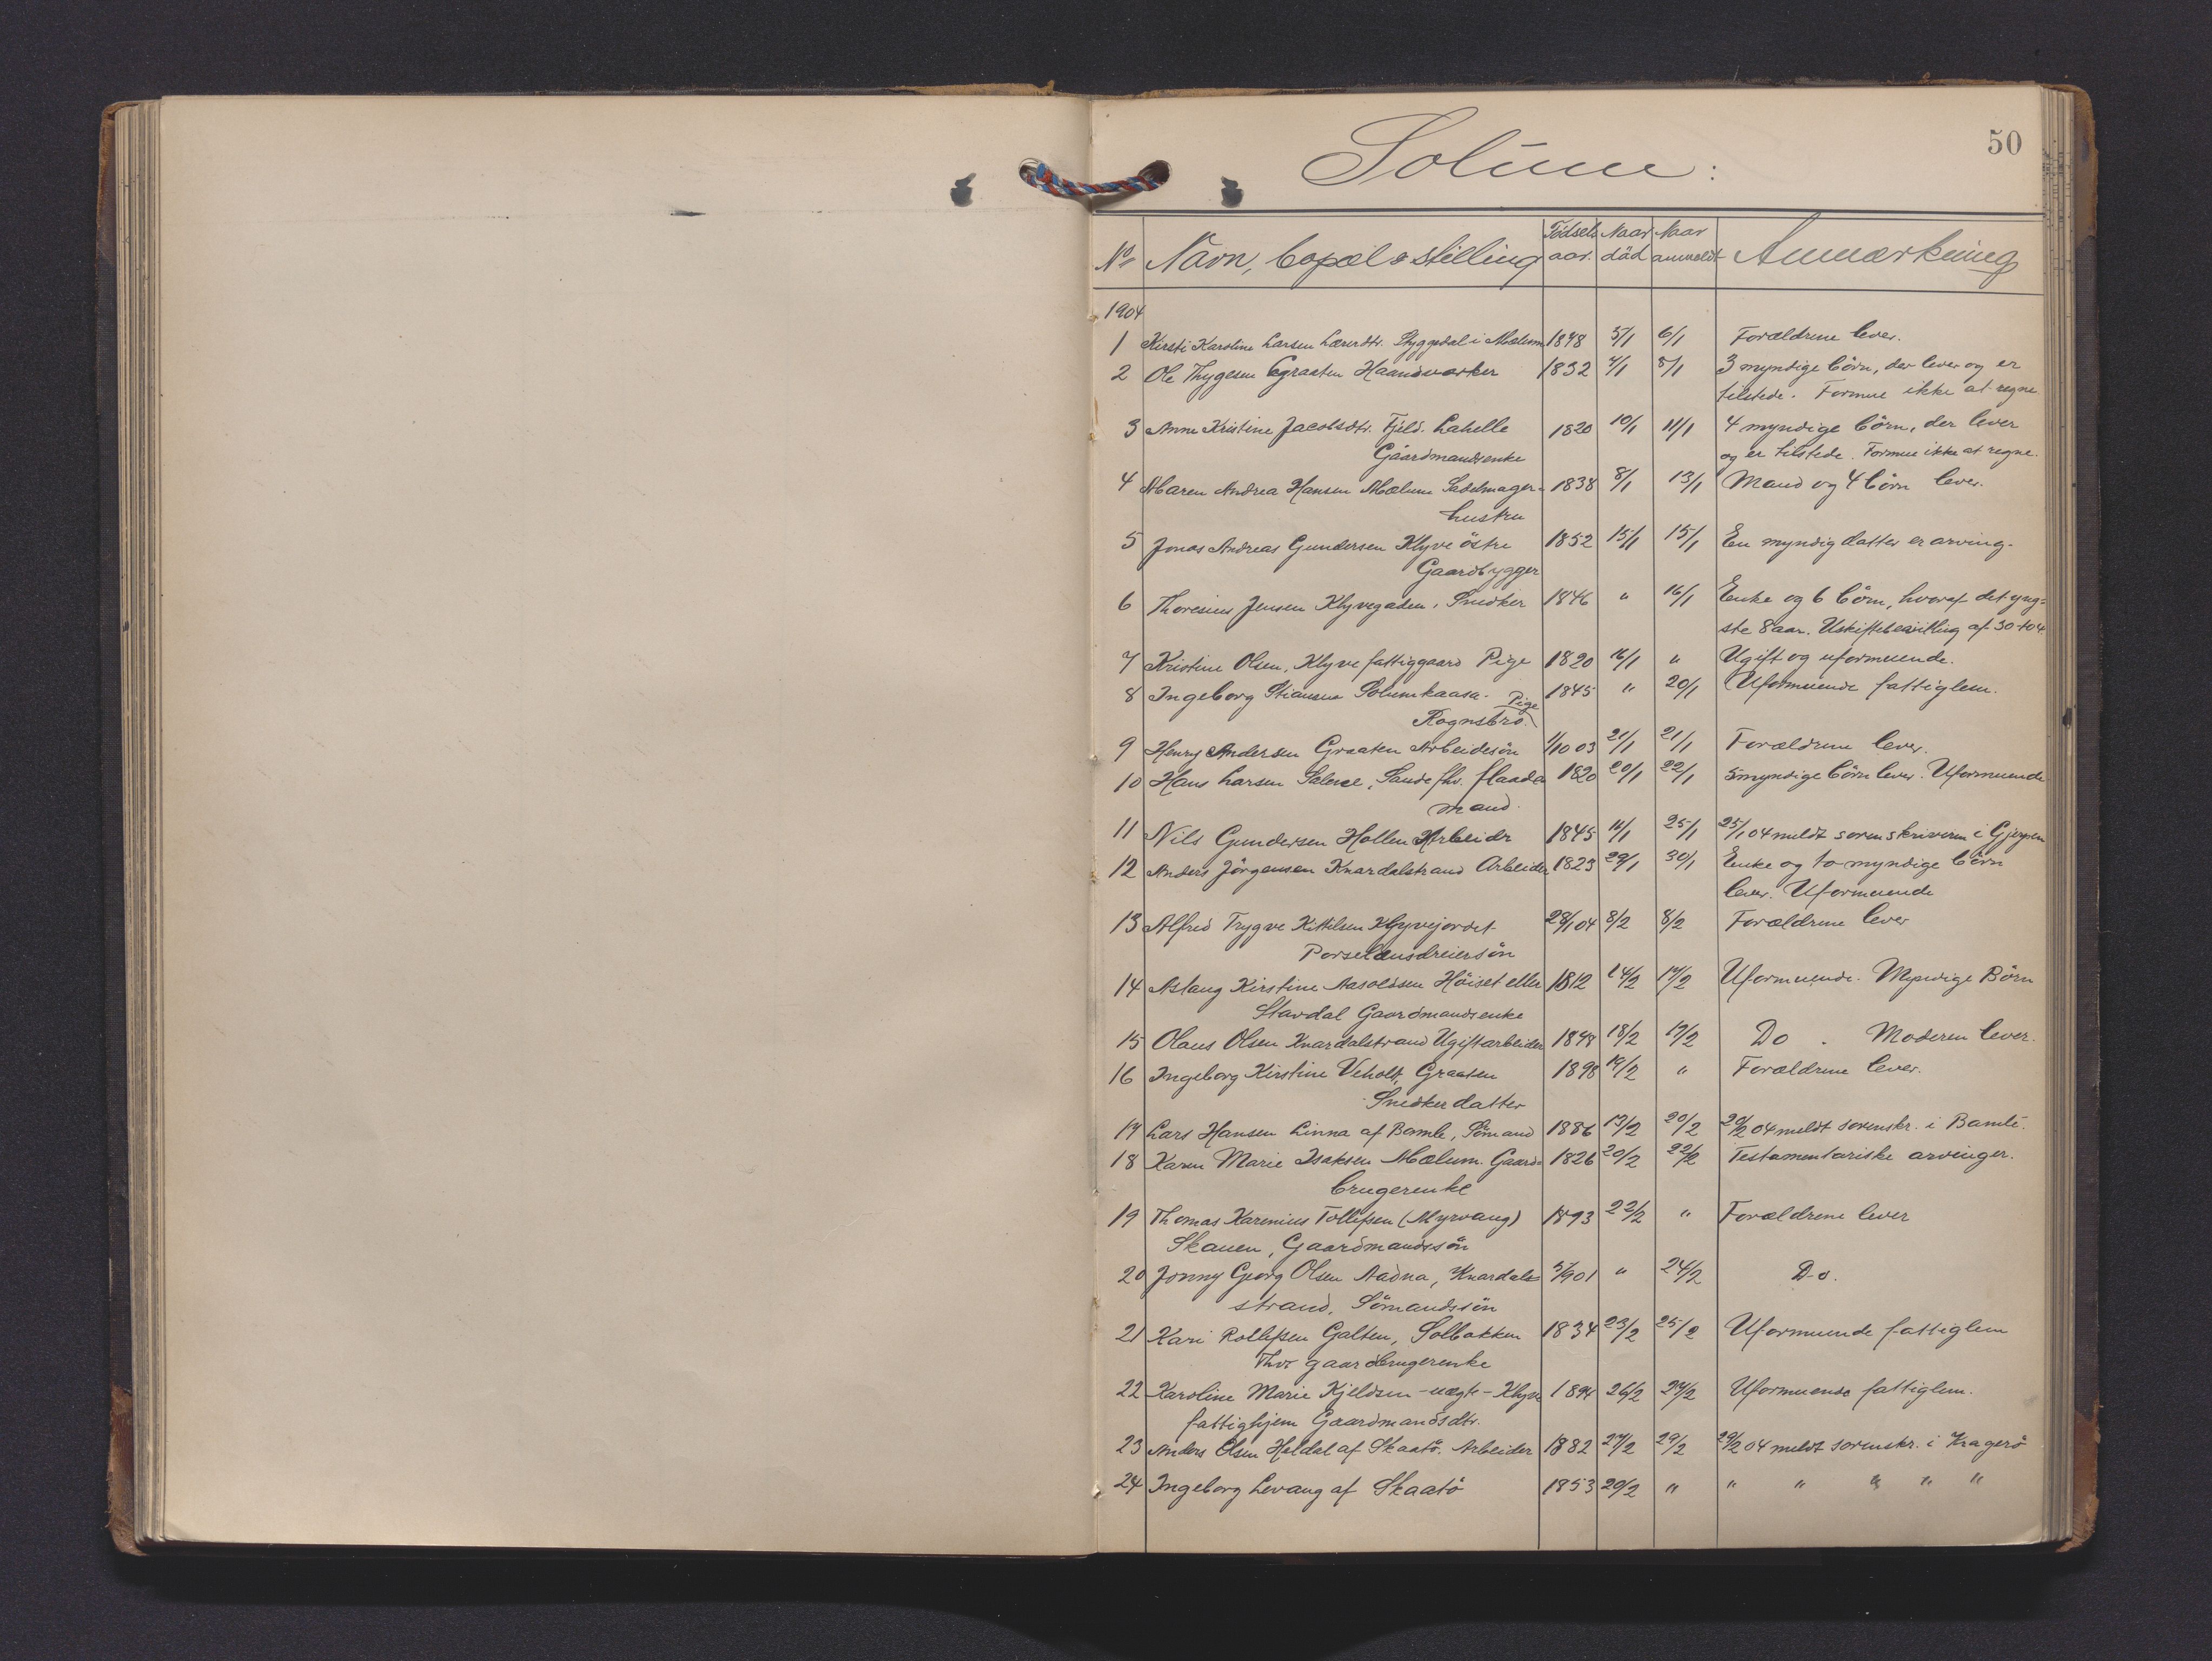 50
Solum:
No Navn, bopæl & stilling Fødsels aar. Naar död Naar anmeldt Anmærkning
1904
1 Kirsti Karoline Larsen Lærerdtr. Styggedal i Mælum 1898 5/1 6/1 Forældrene lever.
2 Ole Thygesen Graaten Haandværker 1832 4/1 8/1 3 myndige börn, der lever og er
tilstede. Formue ikke at regne
3 Anne Kristine Jacobsdtr. Fjeld. Lahelle 1820 10/1 11/1 4 myndige börn, der lever
Gaardmandsenke og er tilstede. Formue ikke at regne.
4 Maren Andrea Hansen Mælum Sadelmager- 1838 8/1 13/1 Mand og 4 börn lever.
hustru
5 Jonas Andreas Gundersen Klyve östre 1852 15/1 15/1 En myndig datter er arving.
Gaardbygger
6 Thorenius Jensen Klyvegaden, Snedker 1846 " 16/1 Enke og 6 börn, hvoraf det yng=
ste 8 aar. Uskiftebevilling af 30-1-04
7 Kristine Olsen, Klyve fattiggaard Pige 1820 16/1 " Ugift og uformuende.
8 Ingeborg Stiansen Solumkaasa. Pige 1845 " 20/1 Uformuende fattiglem.
Rognsbro.
9 Henry Andersen Graaten Arbeidesön 1/10 03 21/1 21/1 Forældrene lever.
10 Hans Larsen Salene, Sande fhv. flaade 1820 20/1 22/1 5 myndige börn lever. Uformuende
mand.
11 Nils Gundersen Hollen Arbeider 1845 16/1 25/1 25/1 04 meldt sorenskriveren i Gjerpen
12 Anders Jörgensen Knardalstrand Arbeider 1823 29/1 30/1 Enke og to myndige börn
lever. Uformuende
13 Alfred Trygve Kittilsen Klyvejordet 28/1 04 8/2 8/2 Forældrene lever
Porselænsdreiersön
14 Aslaug Kirstine Aasoldsen Höiset eller 1812 14/2 17/2 Uformuende. Myndige Börn
Stavdal Gaardmandsenke
15 Olaus Olsen Knardalstrand Ugift arbeider 1878 18/2 19/2 Do . Moderen lever.
16 Ingeborg Kirstine Veholt, Graaten 1898 19/2 " Forældrene lever.
Snedkerdatter
17 Lars Hansen Linna af Bamle, Sömand 1886 19/2 20/2 20/2 04 meldt sorenskr. i Bamle.
18 Karen Marie Isaksen Mælum. Gaard= 1826 20/2 22/2 Testamentariske arvinger.
brugerenke
19 Thomas Karenius Tollefsen (Myrvang) 1893 22/2 " Forældrene lever
Skauen, Gaardmandssön
20 Jonny Georg Olsen Aadna, Knardals= 5/901 " 24/2 Do.
strand, Sömandssön
21 Kari Rollefsen Galten, Solbakken 1834 23/2 25/2 Uformuende fattiglem
Fhv gaardbrugerenke
22 Karoline Marie Kjeldsen - uægte - Klyve 1894 26/2 27/2 Uformuende fattiglem.
fattighjem Gaardmandsdtr.
23 Anders Olsen Heldal af Skaatö. Arbeider 1882 27/2 29/2 29/2 04 meldt sorenskr. i Kragerö
24 Ingeborg Levang af Skaatö 1853 29/2 " " " " " "